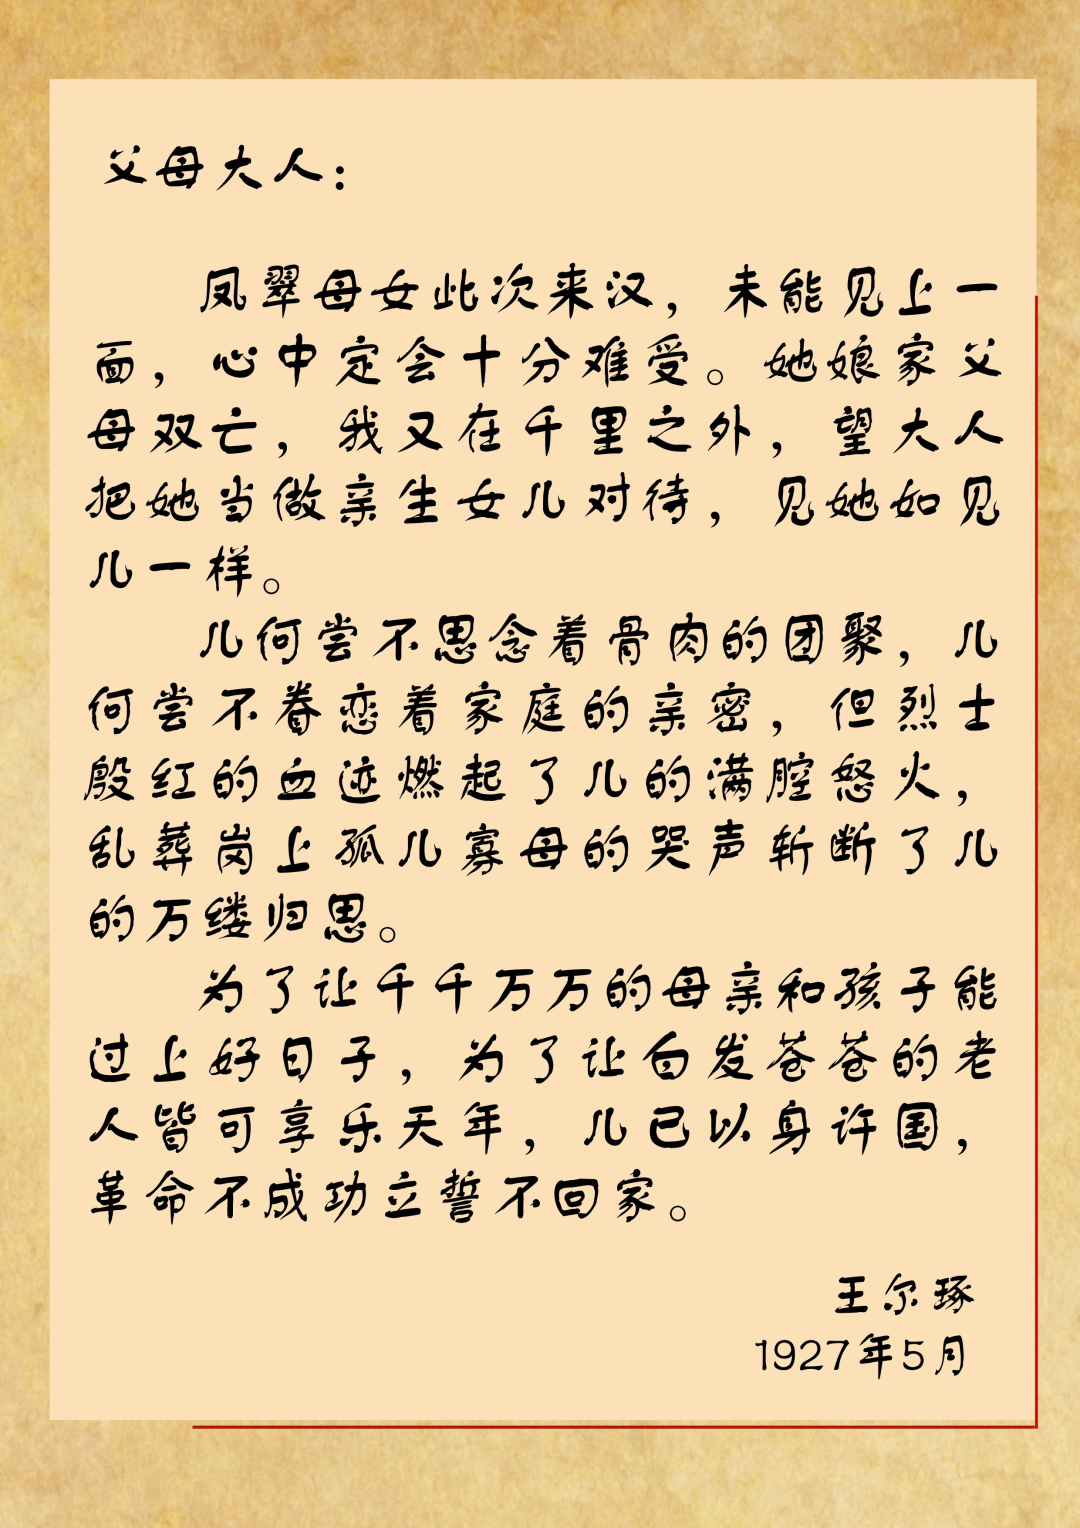 父母大人：
凤翠母女此次来汉，未能见上一
面，心中定会十分难受。她娘家父
母双亡，我又在千里之外，望大人
把她当做亲生女儿对待，见她如见
儿一样。
儿何尝不思念着骨肉的团聚，儿
何尝不眷恋着家庭的亲密，但烈士
殷红的血迹燃起了儿的满腔怒火，
乱葬岗上孤儿寡母的哭声斩断了儿
的万缕归思。
为了让千千万万的母亲和孩子能
过上好日子，为了让白发苍苍的老
人皆可享乐天年，儿已以身许国，
革命不成功立誓不回家。
王尔琢
1927年5月